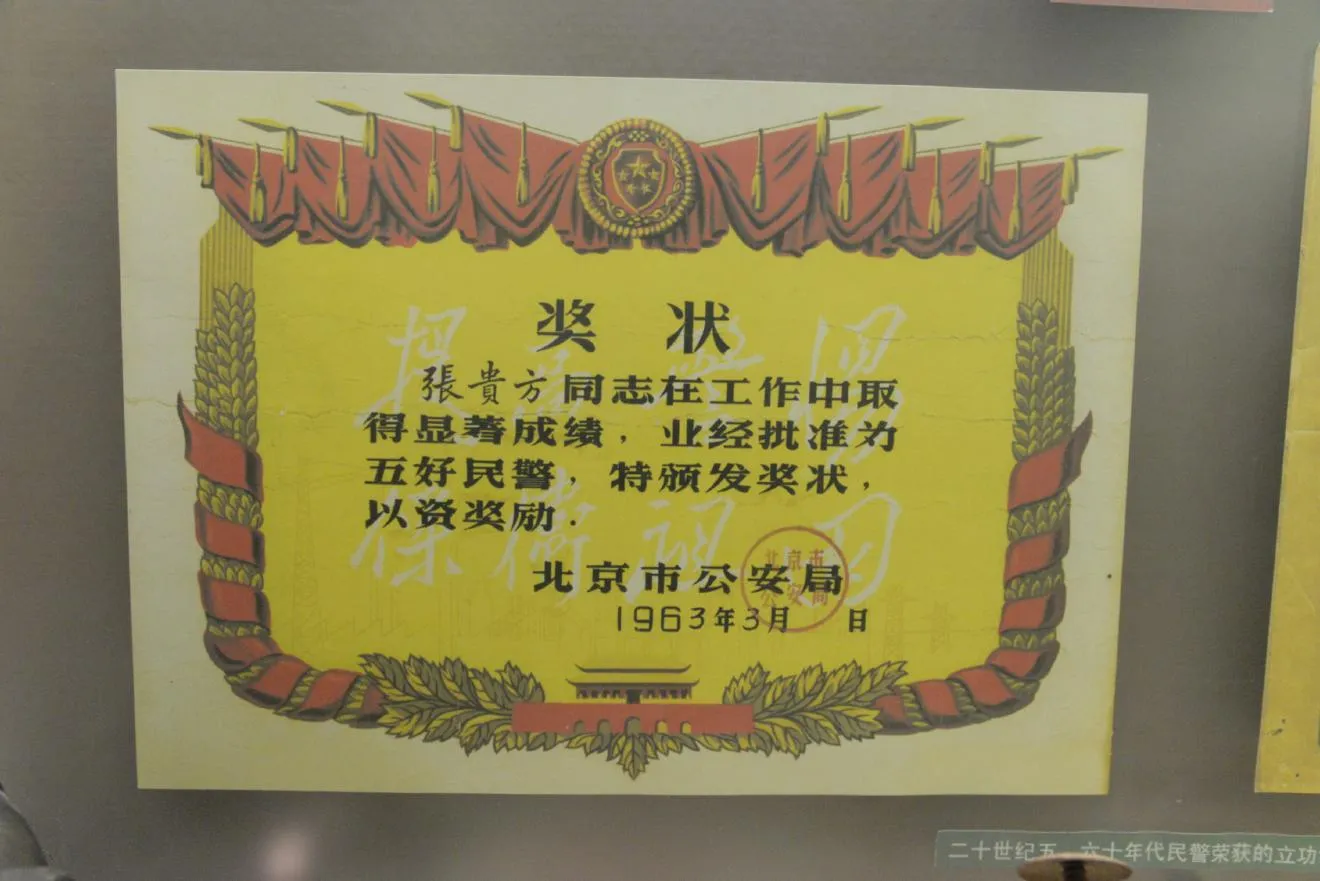 奖 状
張貴方同志在工作中取
得显著成绩，业经批准为
五好民警，特颁发奖状，
以资奖励．
北京市公安局
1963年3月 日
北京市
公安局
提高警惕
保衛祖国
二十世纪五、六十年代民警荣获的立功